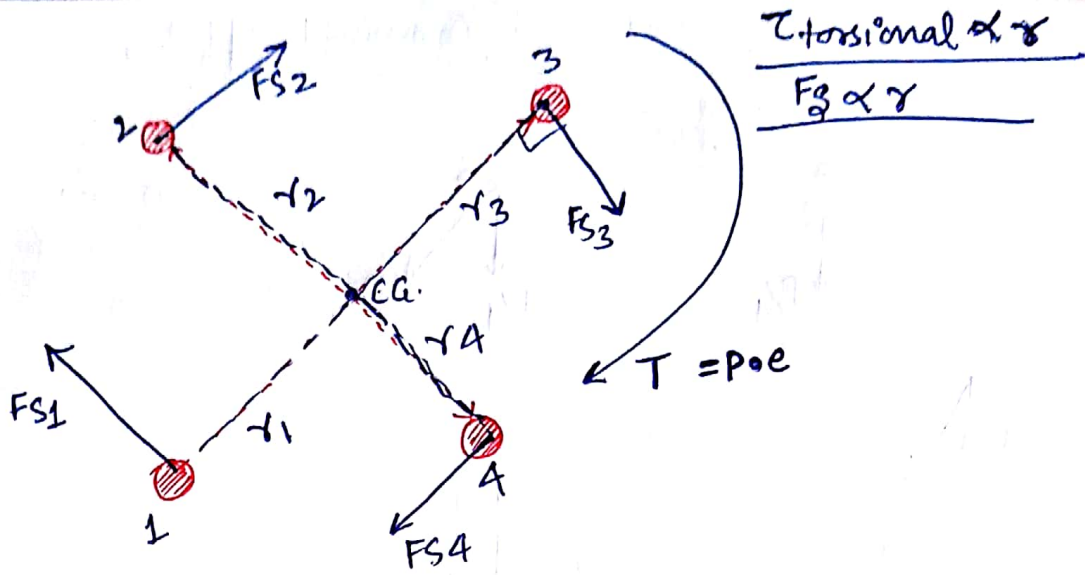 τ torsional ∝ r
Fs ∝ r
FS2
3
2
r2
r3
FS3
CG.
r4
T = P•e
FS1
r1
1
4
FS4